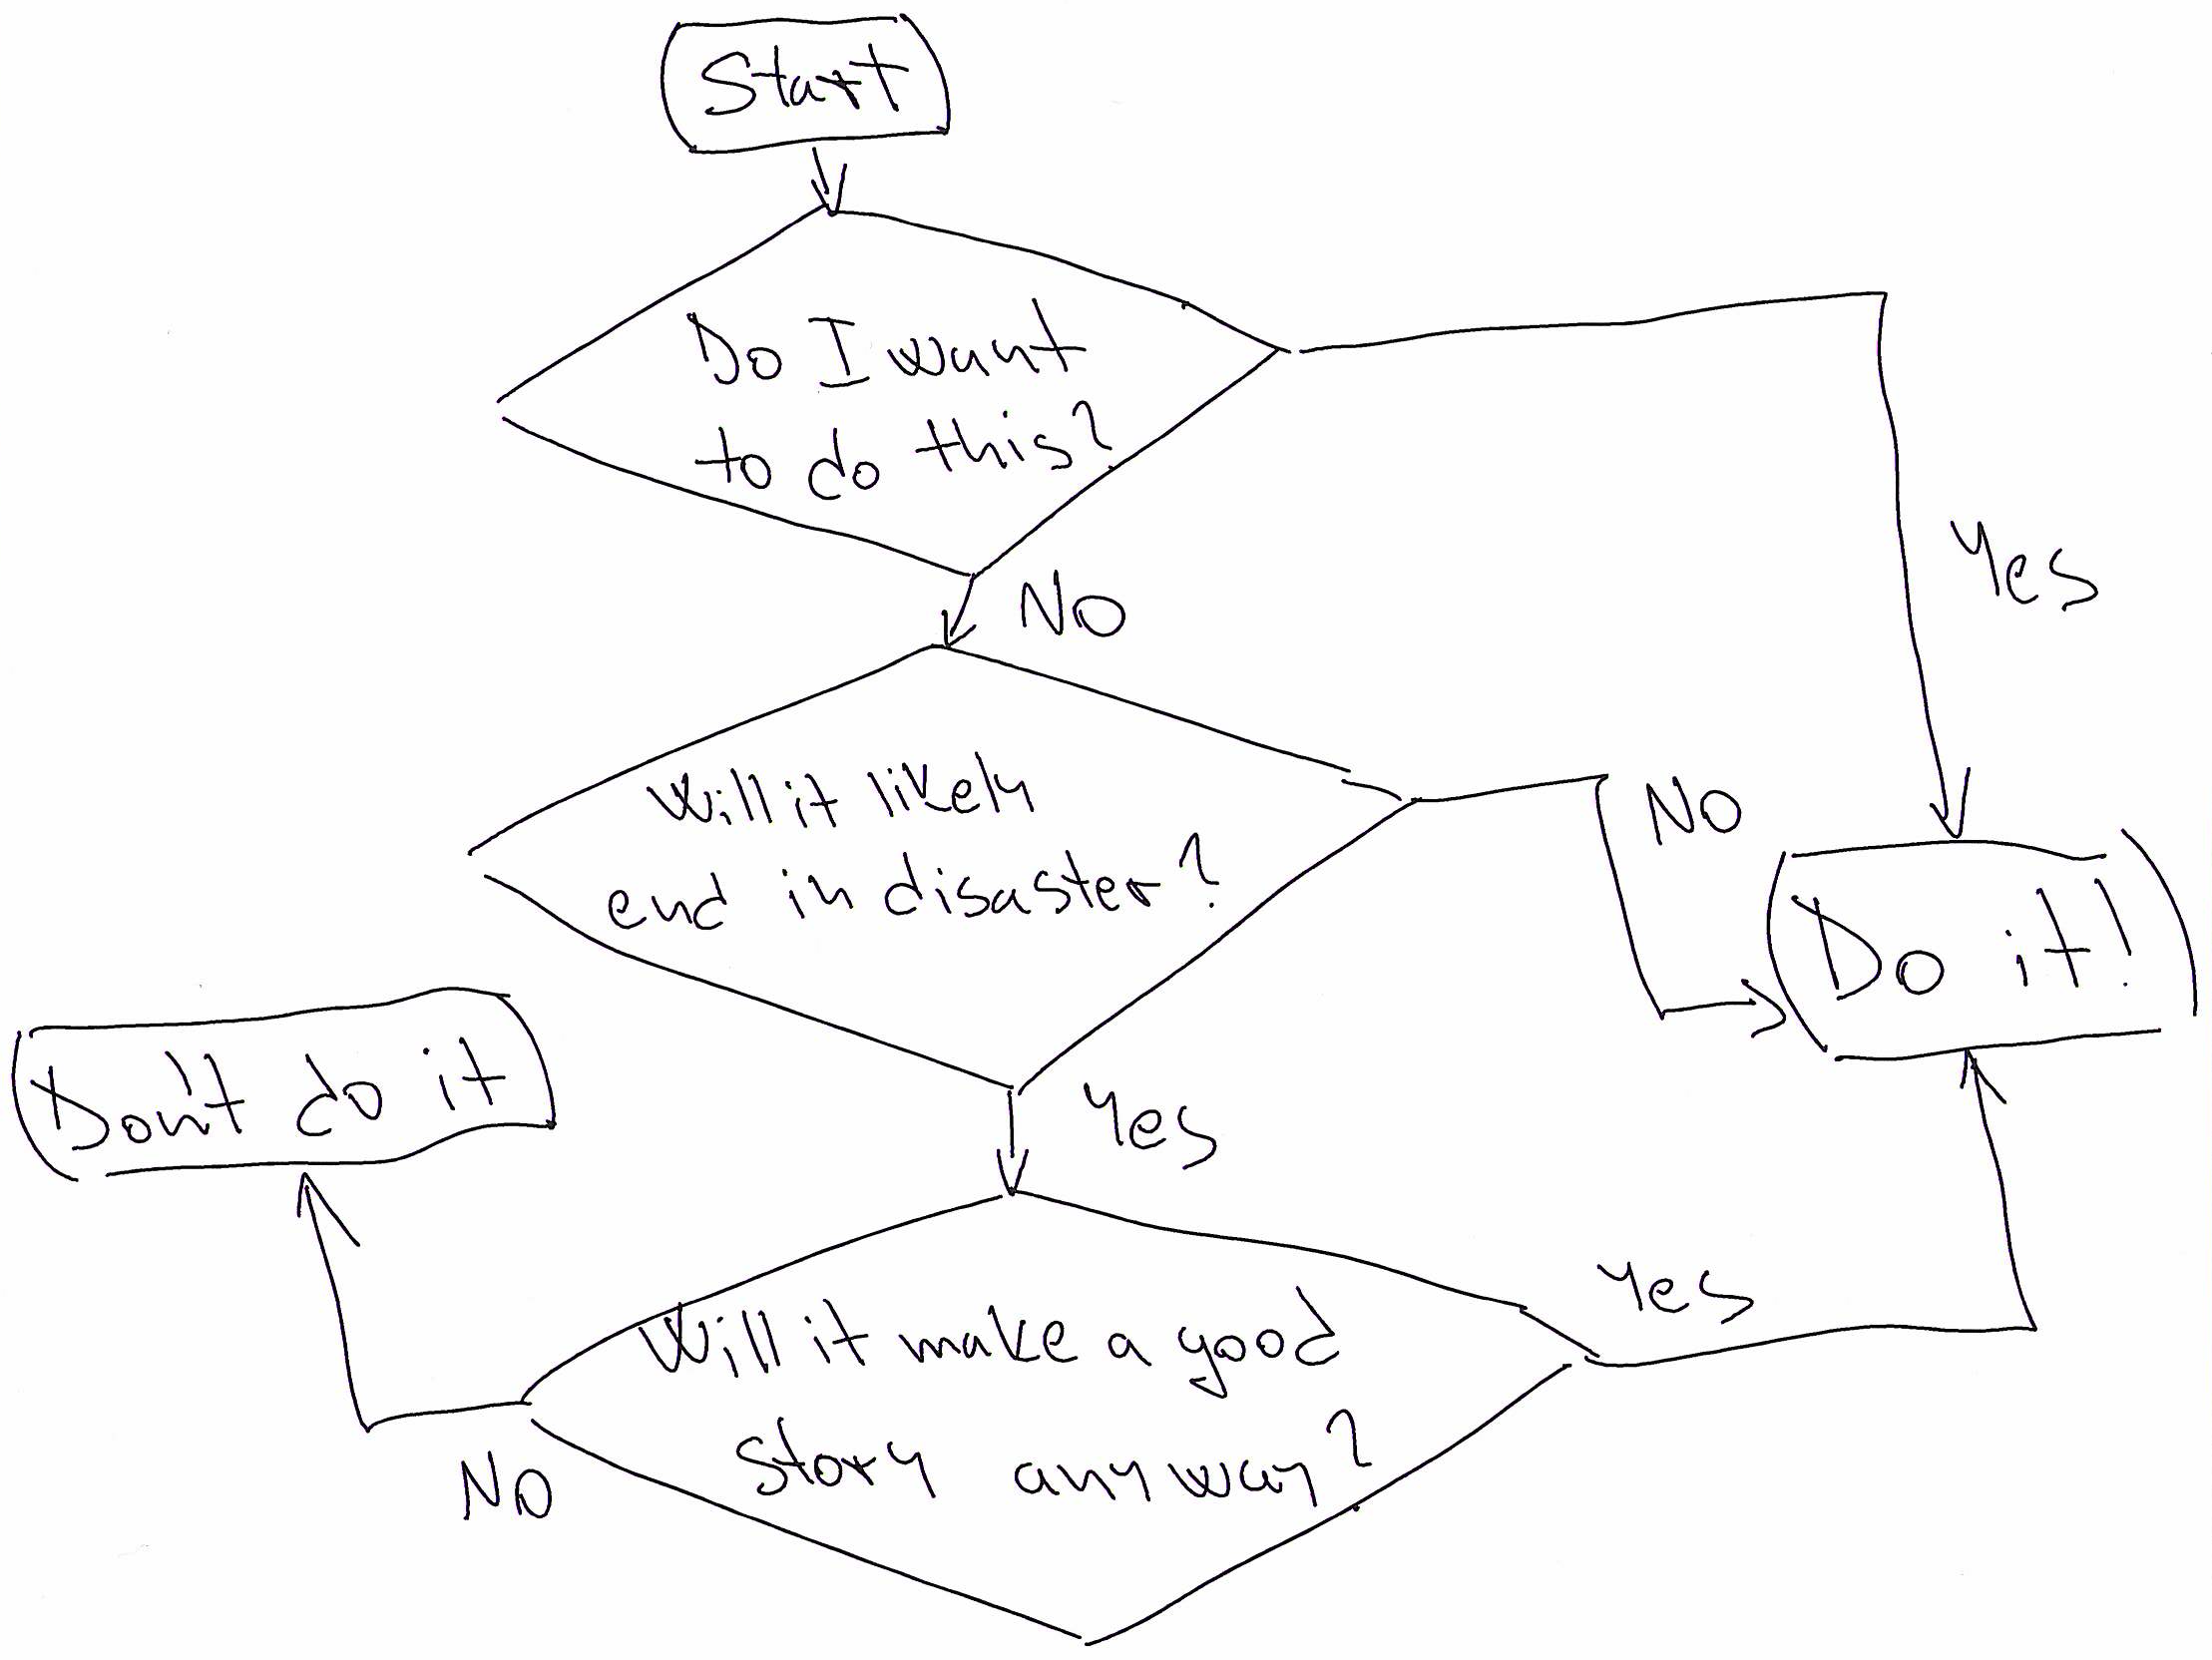 Start
Do I want
to do this?
Yes
NO
Will it likely
end in disaster?
NO
Do it!
Don't do it
Yes
Will it make a good
story anyway?
Yes
NO